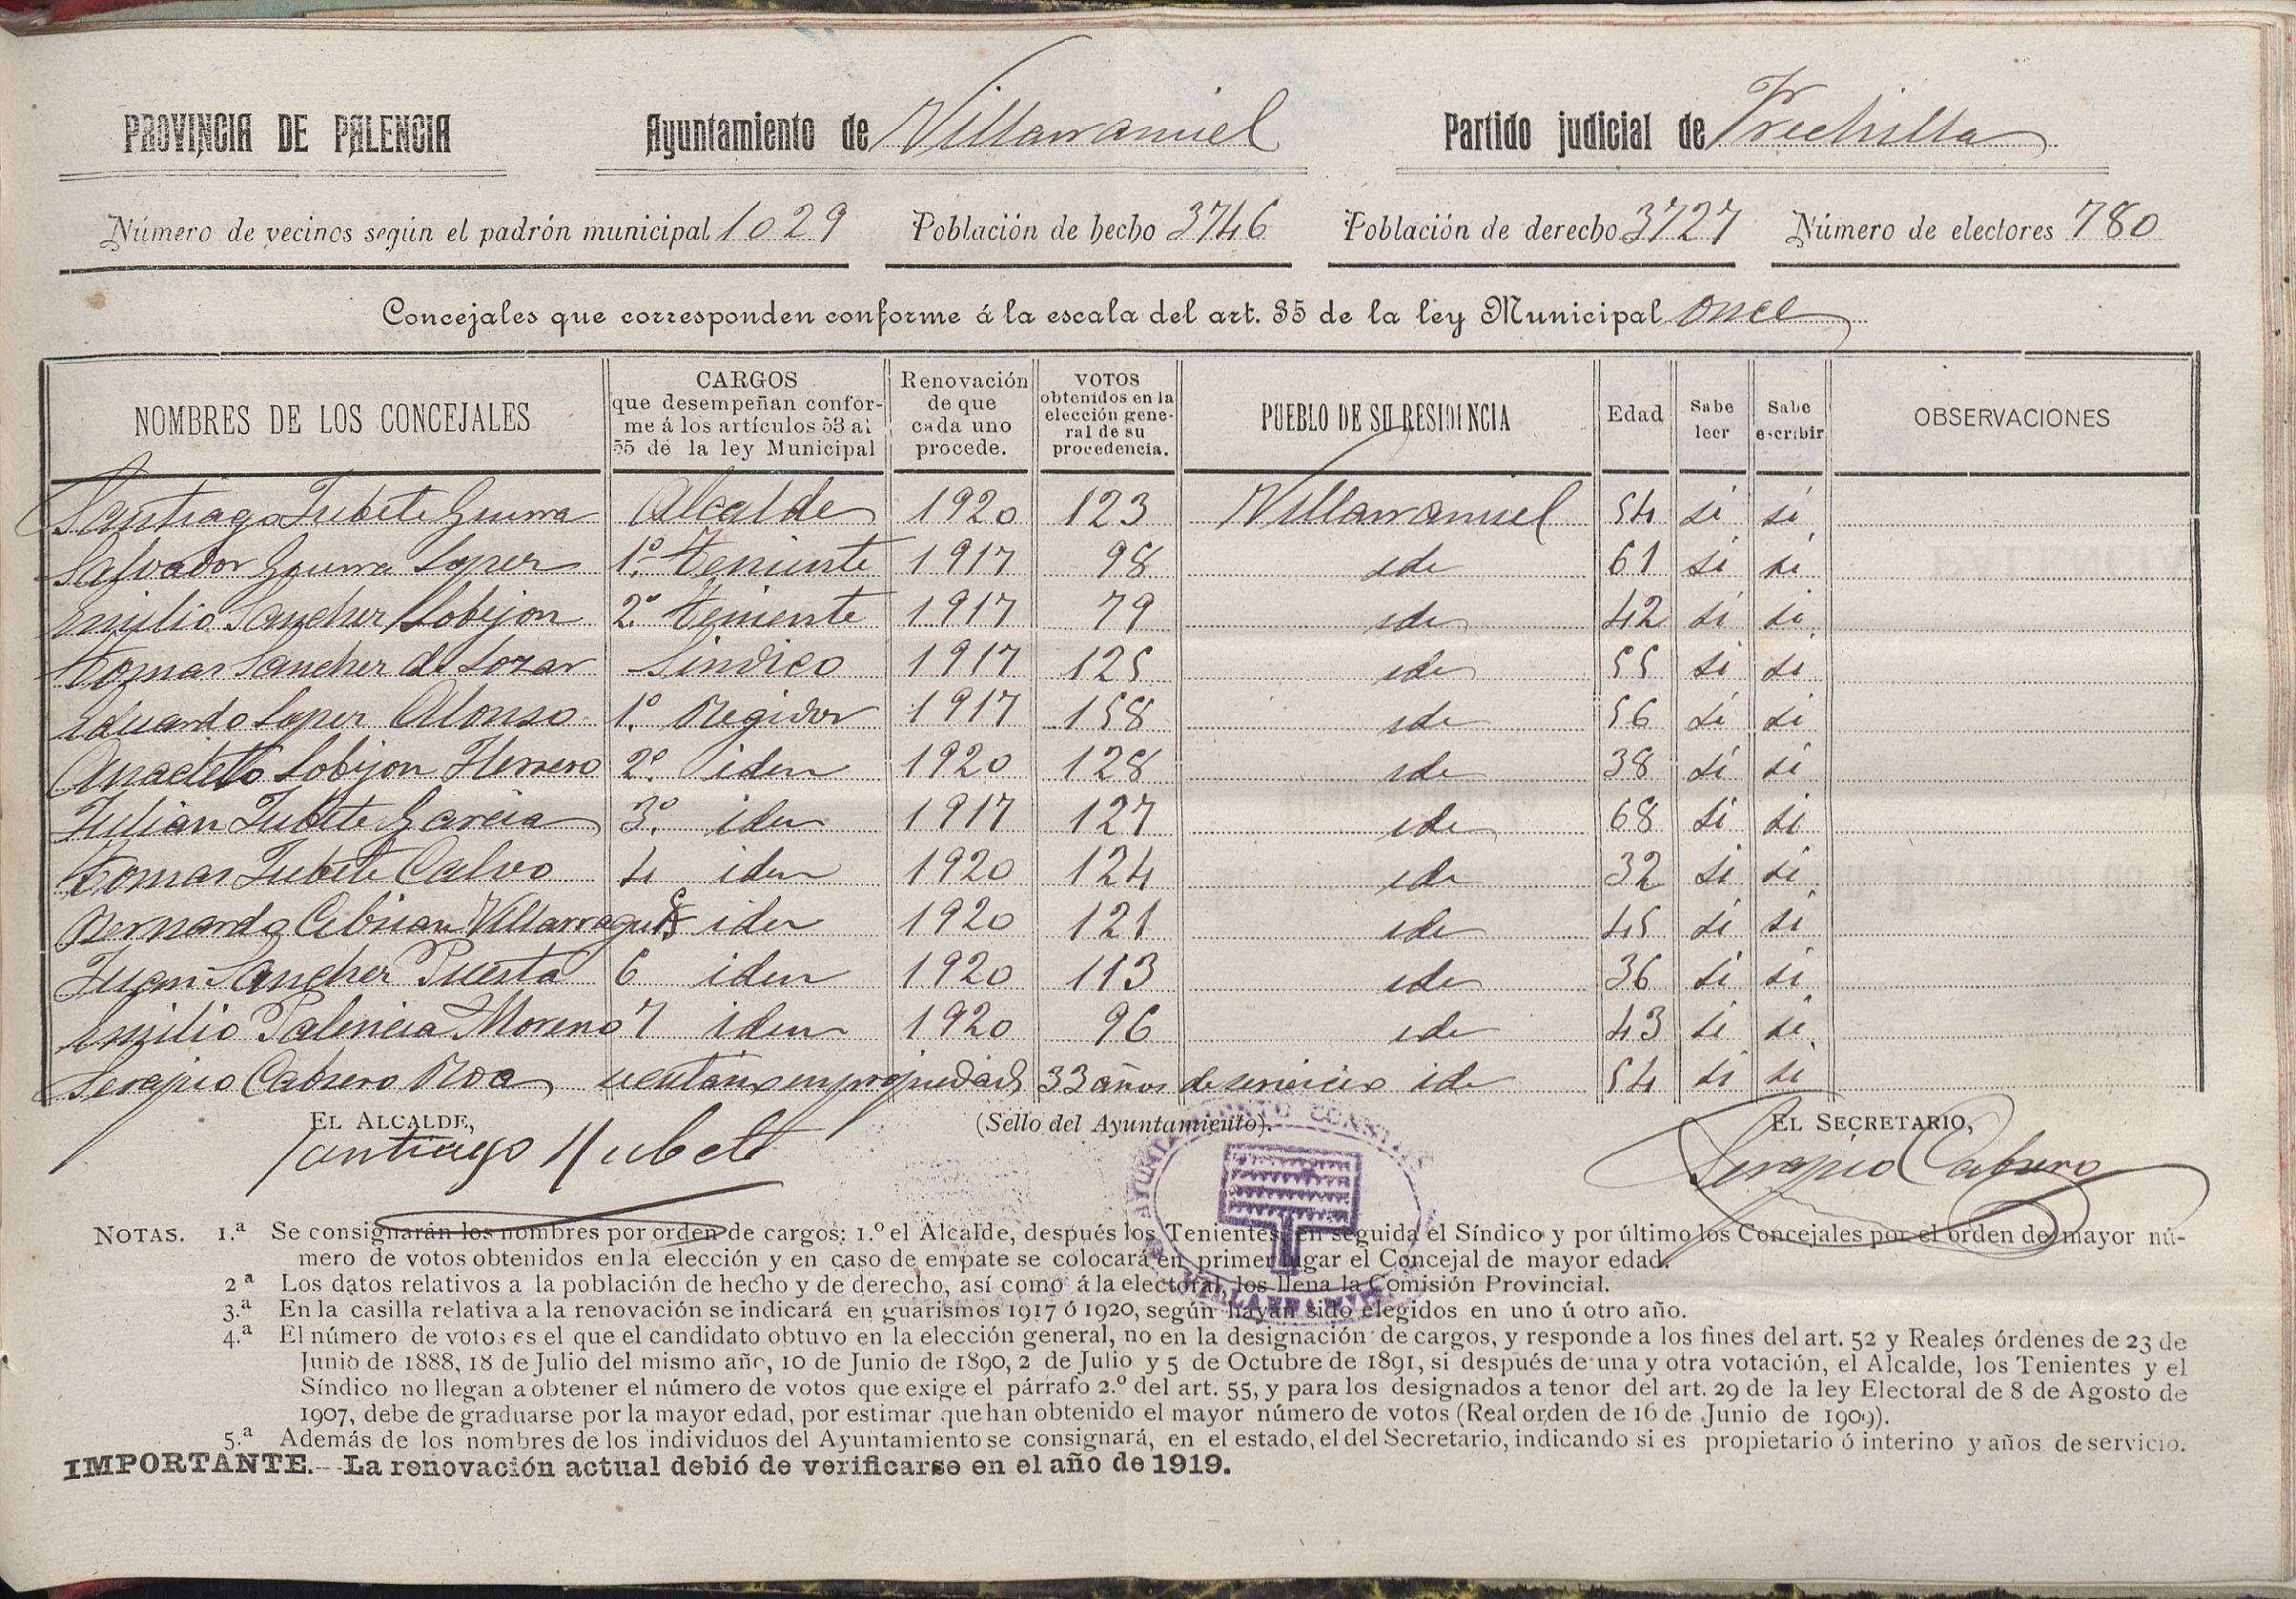 PROVINCIA DE PALENCIA Ayuntamiento de Villarramiel Partido judicial de Frechilla
Número de vecinos según el padrón municipal 1029 Población de hecho 3746 Población de derecho 3727 Número de electores 780
Concejales que corresponden conforme á la escala del art. 35 de la ley Municipal once
NOMBRES DE LOS CONCEJALES
CARGOS
que desempeñan confor-
me á los artículos 53 al
55 de la ley Municipal
Renovación
de que
cada uno
procede.
VOTOS
obtenidos en la
elección gene-
ral de su
procedencia.
PUEBLO DE SU RESIDENCIA
Edad
Sabe
leer
Sabe
escribir
OBSERVACIONES
Santiago Tubete Guerra Alcalde 1920 123 Villarramiel 54 si si
Salvador Guerra Lopez 1º Teniente 1917 98 ide 61 si si
Emilio Sanchez Lobejon 2º Teniente 1917 79 ide 42 si si
Tomas Sanchez de Lozar Sindico 1917 125 ide 55 si si
Eduardo Lopez Alonso 1º Regidor 1917 158 ide 56 si si
Anacleto Lobejon Herrero 2º iden 1920 128 ide 38 si si
Julian Tubete Garcia 3º iden 1917 127 ide 68 si si
Tomas Tubete Calvo 4 iden 1920 124 ide 32 si si
Bernardo Cibrian 5 iden 1920 121 ide 45 si si
Juan Sanchez Puerta 6 iden 1920 113 ide 36 si si
Emilio Palencia Moreno 7 iden 1920 96 ide 43 si si
Serapio Cabrero Roa en propiedad 33 años de servicio ide 54 si si
EL ALCALDE, (Sello del Ayuntamiento). EL SECRETARIO,
Santiago Tubete Serapio Cabrero
NOTAS. 1.ª Se consignarán los nombres por orden de cargos: 1.º el Alcalde, después los Tenientes, en seguida el Síndico y por último los Concejales por el orden de mayor nú-
mero de votos obtenidos en la elección y en caso de empate se colocará en primer lugar el Concejal de mayor edad.
2.ª Los datos relativos a la población de hecho y de derecho, así como á la electoral, los llena la Comisión Provincial.
3.ª En la casilla relativa a la renovación se indicará en guarismos 1917 ó 1920, según hayan sido elegidos en uno ú otro año.
4.ª El número de votos es el que el candidato obtuvo en la elección general, no en la designación de cargos, y responde a los fines del art. 52 y Reales órdenes de 23 de
Junio de 1888, 18 de Julio del mismo año, 10 de Junio de 1890, 2 de Julio y 5 de Octubre de 1891, si después de una y otra votación, el Alcalde, los Tenientes y el
Síndico no llegan a obtener el número de votos que exige el párrafo 2.º del art. 55, y para los designados a tenor del art. 29 de la ley Electoral de 8 de Agosto de
1907, debe de graduarse por la mayor edad, por estimar que han obtenido el mayor número de votos (Real orden de 16 de Junio de 1909).
5.ª Además de los nombres de los individuos del Ayuntamiento se consignará, en el estado, el del Secretario, indicando si es propietario ó interino y años de servicio.
IMPORTANTE.--La renovación actual debió de verificarse en el año de 1919.